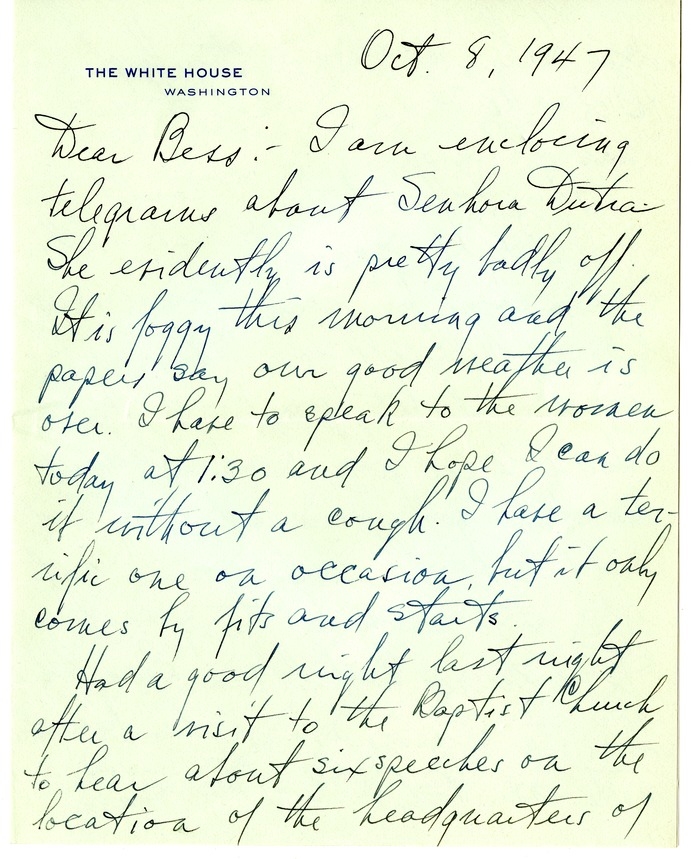 Oct. 8, 1947
THE WHITE HOUSE
WASHINGTON
Dear Bess:- I am enclosing
telegrams about Senhora Dutra.
She evidently is pretty badly off.
It is foggy this morning and the
papers say our good weather is
over. I have to speak to the women
today at 1:30 and I hope I can do
it without a cough. I have a ter-
rific one on occasion, but it only
comes by fits and starts.
Had a good night last night
after a visit to the Baptist Church
to hear about six speeches on the
location of the headquarters of